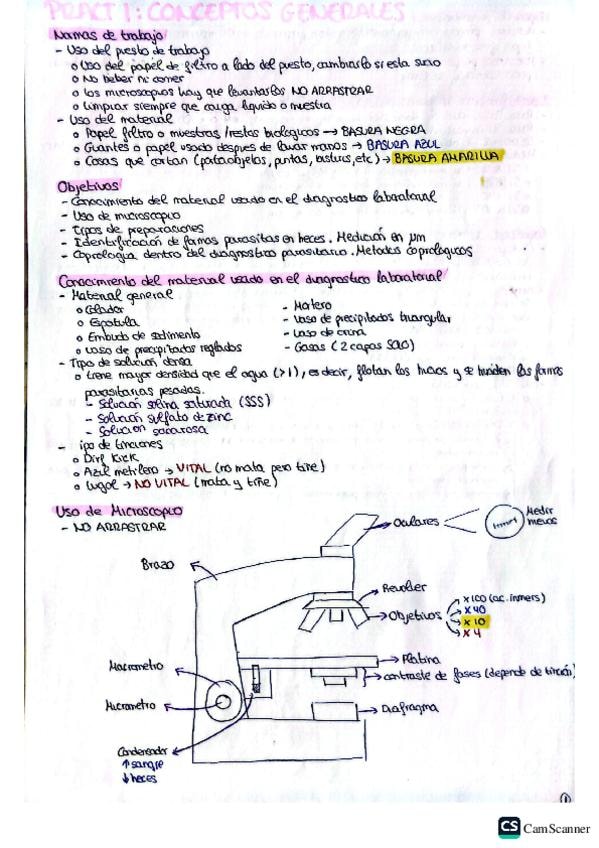 PRACT 1: CONCEPTOS GENERALES
Normas de trabajo
- Uso del puesto de trabajo
o Uso del papel de filtro a lado del puesto, cambiarlo si esta sucio
o No beber ni comer
o Los microscopios hay que levantarlos NO ARRASTRAR
o Limpiar siempre que caiga liquido o muestra
- Uso del material
o Papel filtro o muestras/restos biologicos → BASURA NEGRA
o Guantes o papel usado despues de lavar manos → BASURA AZUL
o Cosas que cortan (portaobjetos, puntas, bisturis, etc) → BASURA AMARILLA
Objetivos
- Conocimiento del material usado en el diagnostico laboratorial
- Uso de microscopio
- Tipos de preparaciones
- Identificación de formas parasitas en heces. Medición en µm
- Coprologia dentro del diagnostico parasitario. Metodos coprologicos
Conocimiento del material usado en el diagnostico laboratorial
- Material general
o Colador
o Espatula
o Embudo de sedimento
o Vaso de precipitados reglados
- Mortero
- Vaso de precipitados triangular
- Vaso de
- Gasas (2 capas solo)
- Tipo de solucion densa
o tiene mayor densidad que el agua (>1), es decir, flotan los huevos y se hunden las formas
parasitarias pesadas.
- Solución salina saturada (SSS)
- Solucion sulfato de zinc
- Solucion sacarosa
- Tipo de tinciones
o Diff Kick
o Azul metileno → VITAL (no mata pero tiñe)
o Lugol → NO VITAL (mata y tiñe)
Uso de Microscopio
- NO ARRASTRAR
Oculares
Medir
huevos
Brazo
Revolver
Objetivos
x100 (ac. inmers)
x40
x10
x4
Platina
contraste de fases (depende de tinción)
Macrometro
Micrometro
Diafragma
Condensador
↑ sangre
↓ heces
1
CS CamScanner